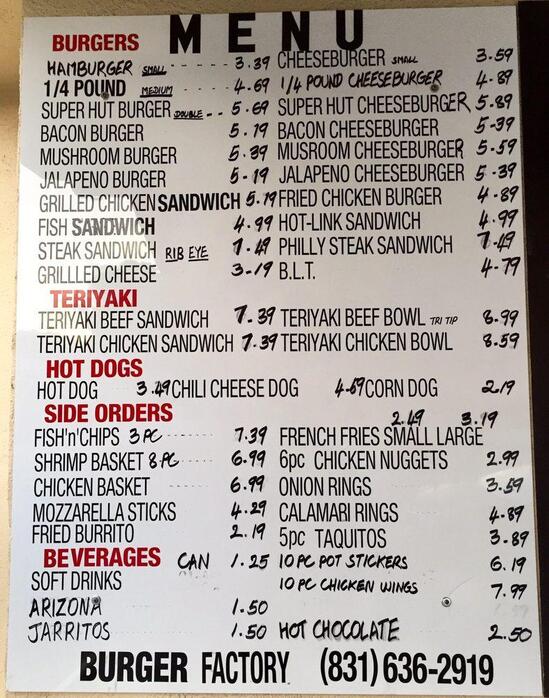 MENU
BURGERS
HAMBURGER SMALL 3.39 CHEESEBURGER SMALL 3.59
1/4 POUND MEDIUM 4.69 1/4 POUND CHEESEBURGER 4.89
SUPER HUT BURGER DOUBLE 5.69 SUPER HUT CHEESEBURGER 5.89
BACON BURGER 5.19 BACON CHEESEBURGER 5.39
MUSHROOM BURGER 5.39 MUSROOM CHEESEBURGER 5.59
JALAPENO BURGER 5.19 JALAPENO CHEESEBURGER 5.39
GRILLED CHICKEN SANDWICH 5.19 FRIED CHICKEN BURGER 4.89
FISH SANDWICH 4.99 HOT-LINK SANDWICH 4.99
STEAK SANDWICH RIB EYE 7.49 PHILLY STEAK SANDWICH 7.49
GRILLLED CHEESE 3.19 B.L.T. 4.79
TERIYAKI
TERIYAKI BEEF SANDWICH 7.39 TERIYAKI BEEF BOWL TRI TIP 8.99
TERIYAKI CHICKEN SANDWICH 7.39 TERIYAKI CHICKEN BOWL 8.59
HOT DOGS
HOT DOG 3.49 CHILI CHEESE DOG 4.69 CORN DOG 2.19
SIDE ORDERS 2.49 3.19
FISH'n'CHIPS 3PC 7.39 FRENCH FRIES SMALL LARGE
SHRIMP BASKET 8PC 6.99 6pc CHICKEN NUGGETS 2.99
CHICKEN BASKET 6.99 ONION RINGS 3.59
MOZZARELLA STICKS 4.29 CALAMARI RINGS 4.89
FRIED BURRITO 2.19 5pc TAQUITOS 3.89
BEVERAGES CAN 1.25 10 PC POT STICKERS 6.19
SOFT DRINKS 10 PC CHICKEN WINGS 7.99
ARIZONA 1.50
JARRITOS 1.50 HOT CHOCOLATE 2.50
BURGER FACTORY (831) 636-2919